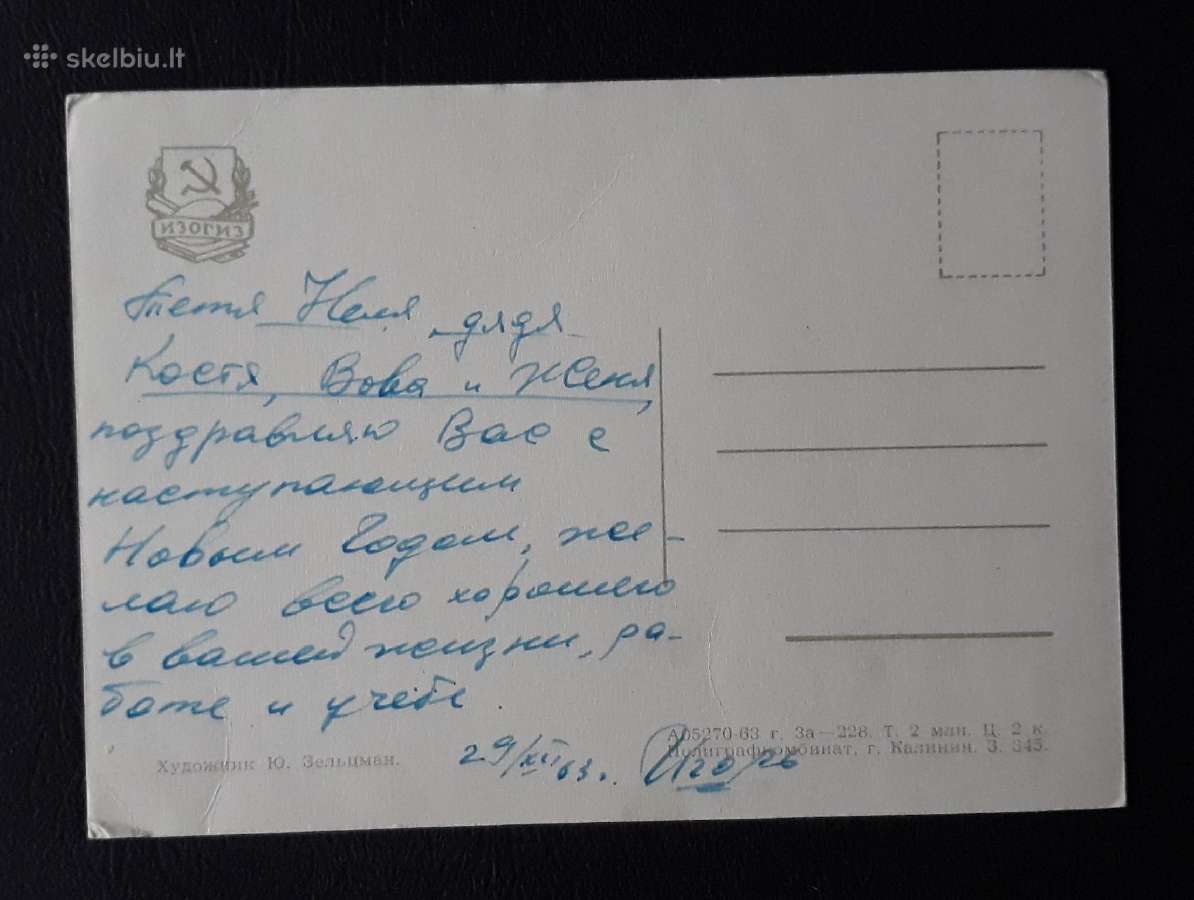 skelbiu.lt
ИЗОГИЗ
Тетя Неля, дядя
Костя, Вова и Женя,
поздравляю Вас с
наступающим
Новым Годом, же-
лаю всего хорошего
в вашей жизни, ра-
боте и учебе.
29/XII 63г. Игорь
Художник Ю. Зельцман.
А05270-63 г. За—228. Т. 2 млн. Ц. 2 к.
Полиграфкомбинат, г. Калинин. З. 345.